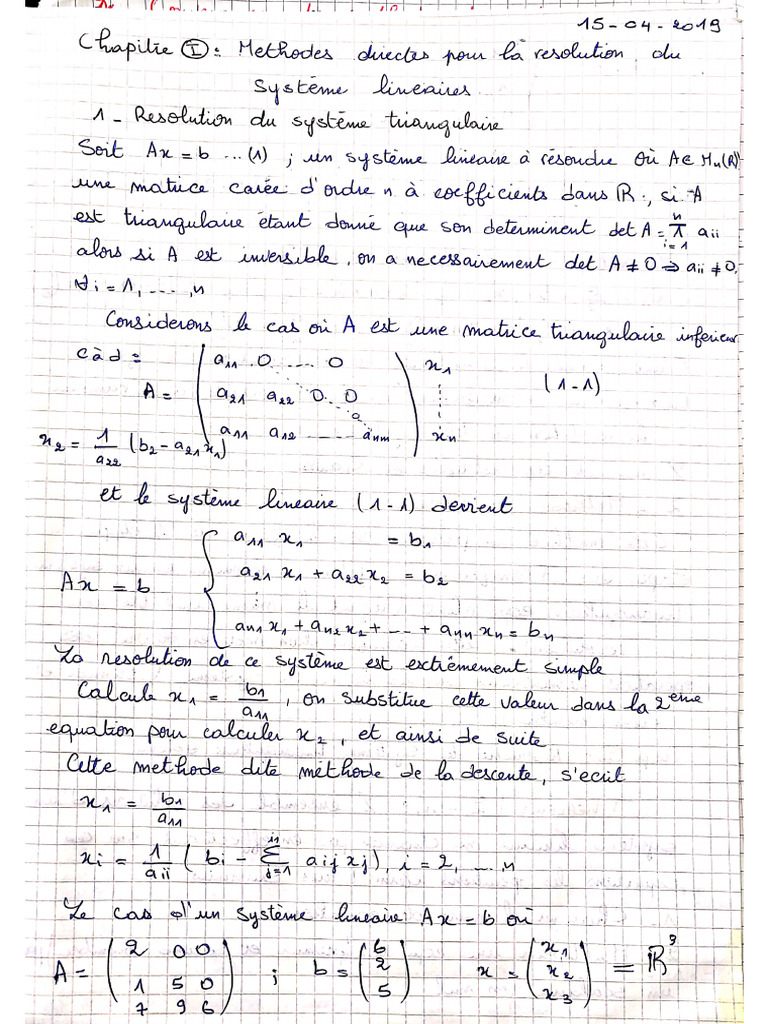 15-04-2019
Chapitre I : Methodes directes pour la resolution du
système lineaires
1 - Resolution du système triangulaire
Soit Ax = b ...(1) ; un système lineaire à résoudre où A∈ Mn(R)
une matrice carée d'ordre n à coefficients dans R., si A
est triangulaire étant donné que son determinent det A = π aii
n
i=1
alors si A est inversible, on a necessairement det A ≠ 0 ⇒ aii ≠ 0.
∀i = 1, ...., n
Considerons le cas où A est une matrice triangulaire inferieur
càd :
A = ( a11 0 .... 0
a21 a22 0 . 0
a11 a12 ...... ann ) x1 ⋮ xn (1-1)
x2 = 1/a22 (b2 - a21 x1)
et le système lineaire (1-1) devient
Ax = b { a11 x1 = b1
a21 x1 + a22 x2 = b2
⋮
an1 x1 + an2 x2 + --- + ann xn = bn
La resolution de ce système est extrêmement simple
Calcule x1 = b1/a11, on substitue cette valeur dans la 2eme
equation pour calculer x2, et ainsi de suite
Cette methode dite méthode de la descente, s'ecrit
x1 = b1/a11
xi = 1/aii ( bi - Σ aij xj), i = 2, ...., n
j=1
Le cas d'un système lineaire Ax = b où
A = ( 2 0 0
1 5 0
7 9 6 ) ; b = ( 6
2
5 ) x = ( x1
x2
x3 ) = R3